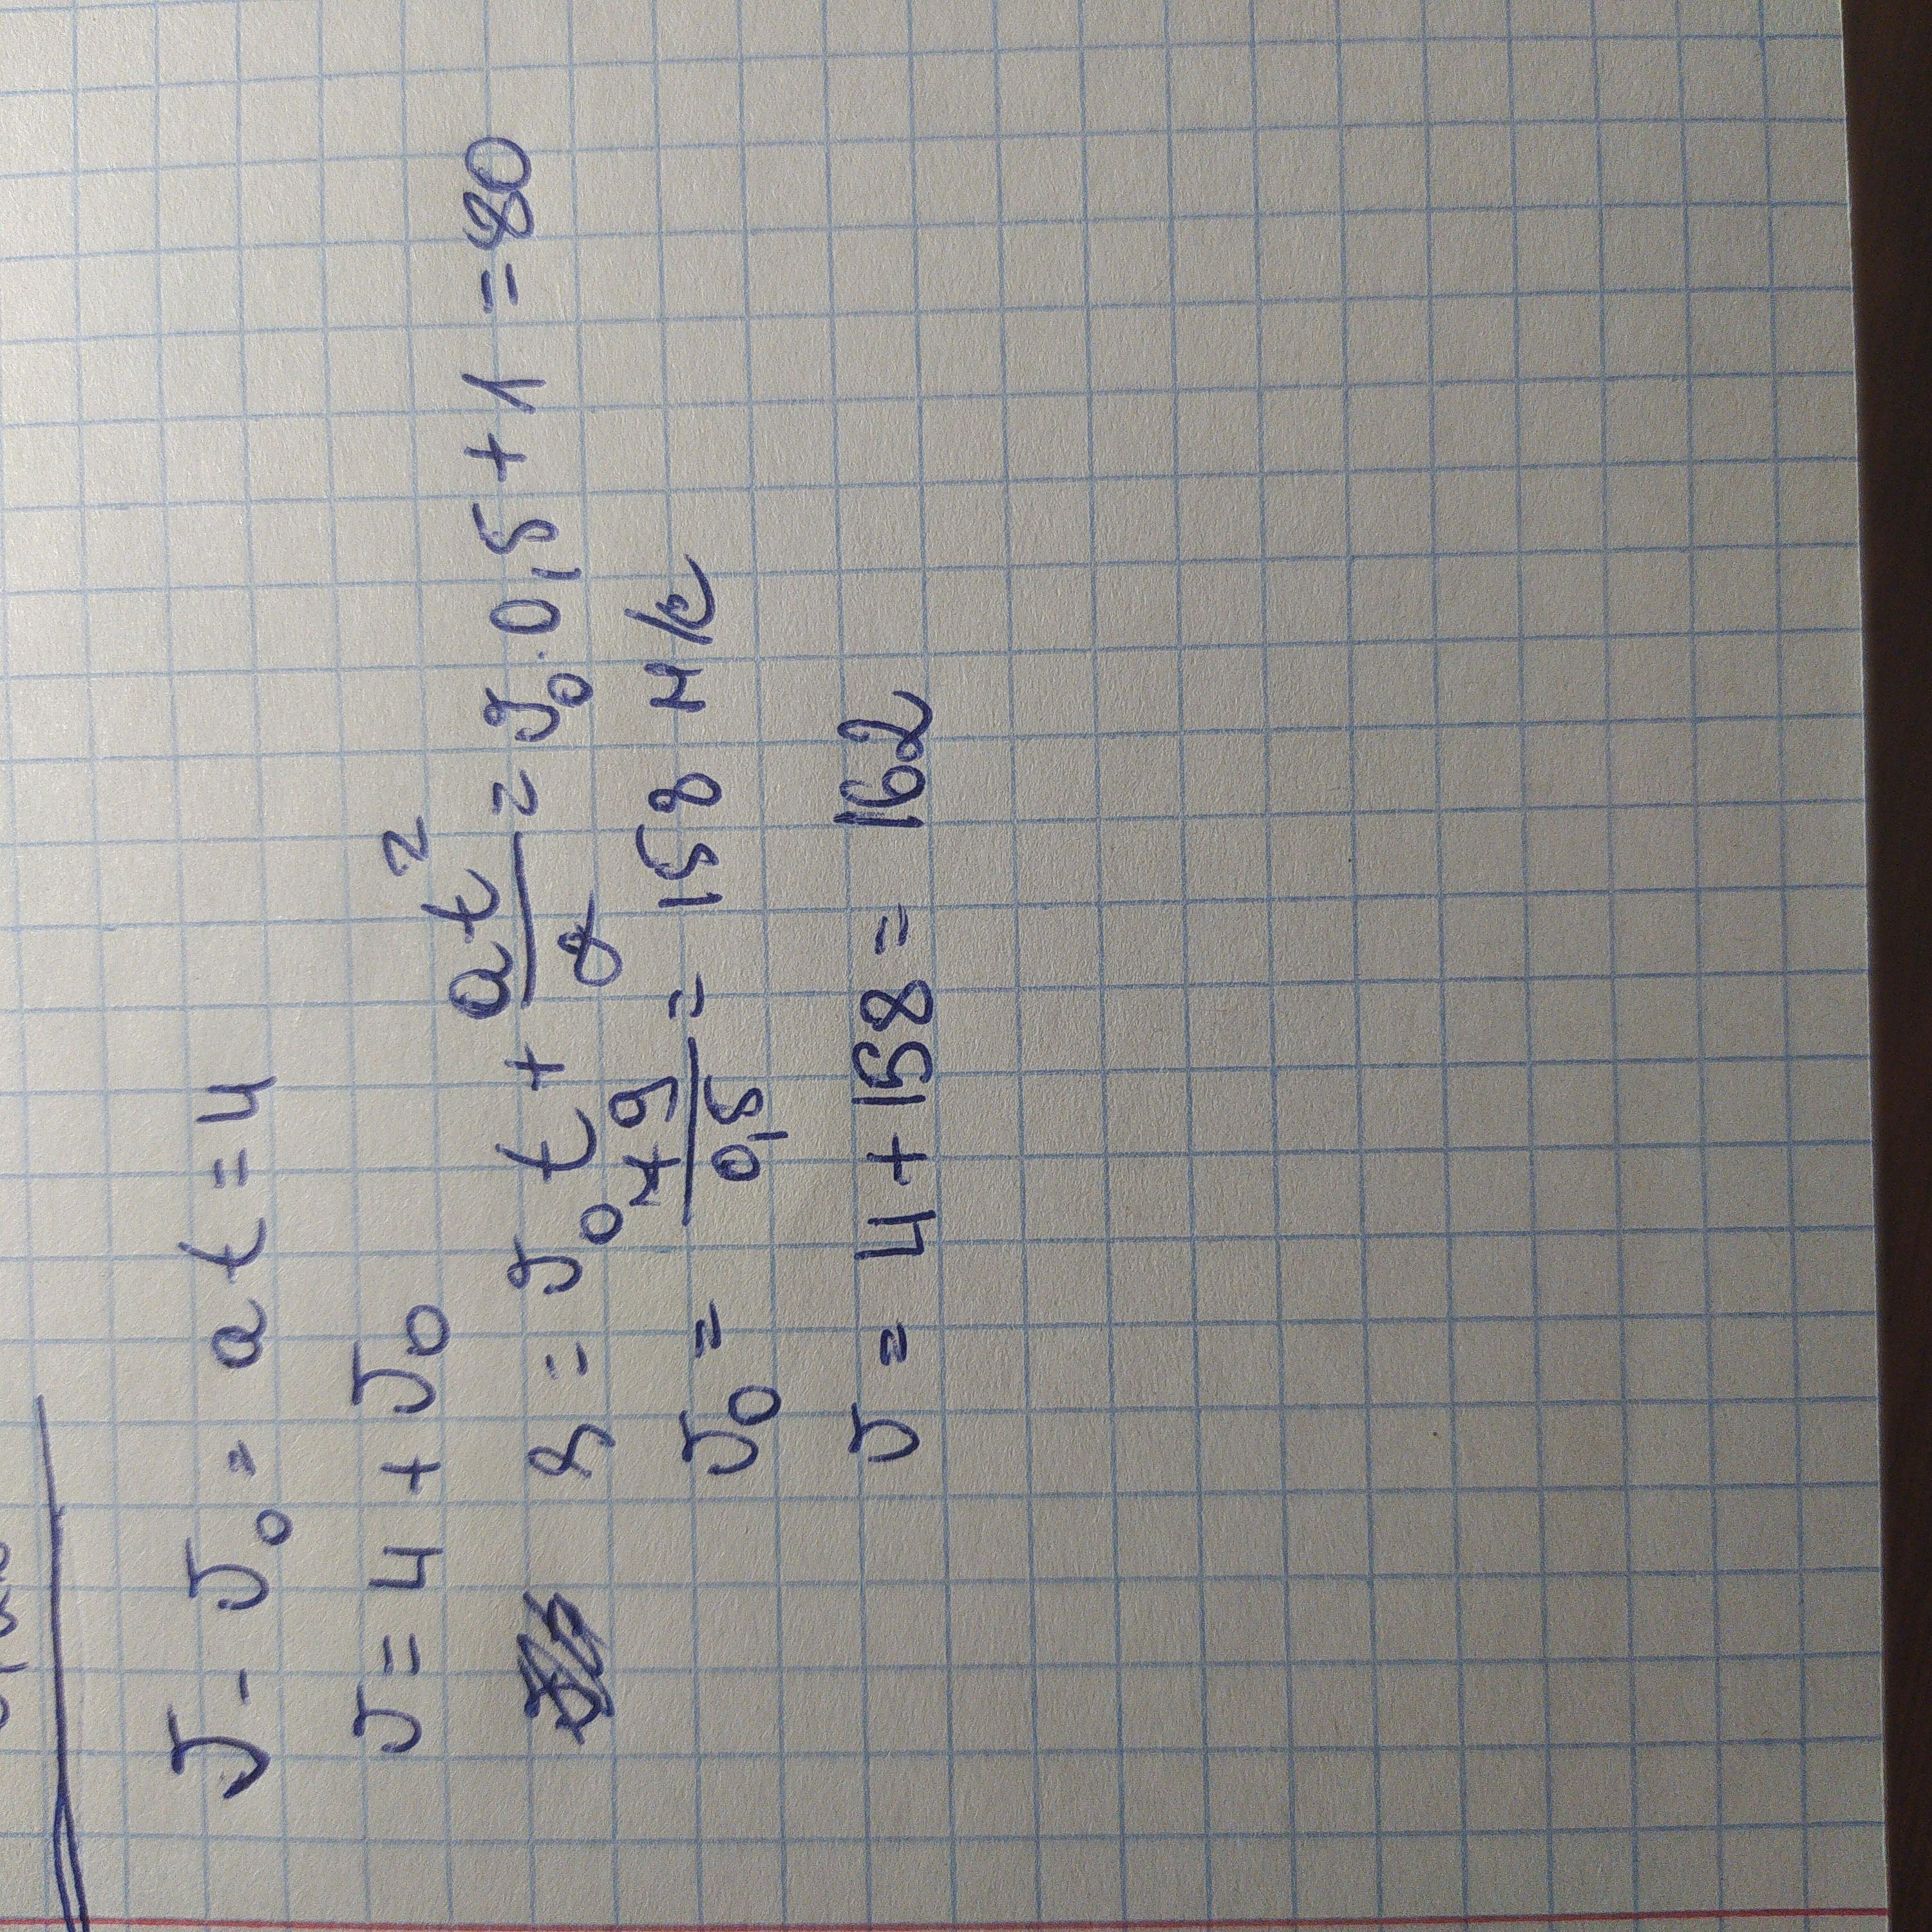 v - v₀ = at = 4
v = 4 + v₀
s = v₀t + at²/2 = v₀·0,5 + 1 = 80
v₀ = 79/0,5 = 158 м/с
v = 4 + 158 = 162